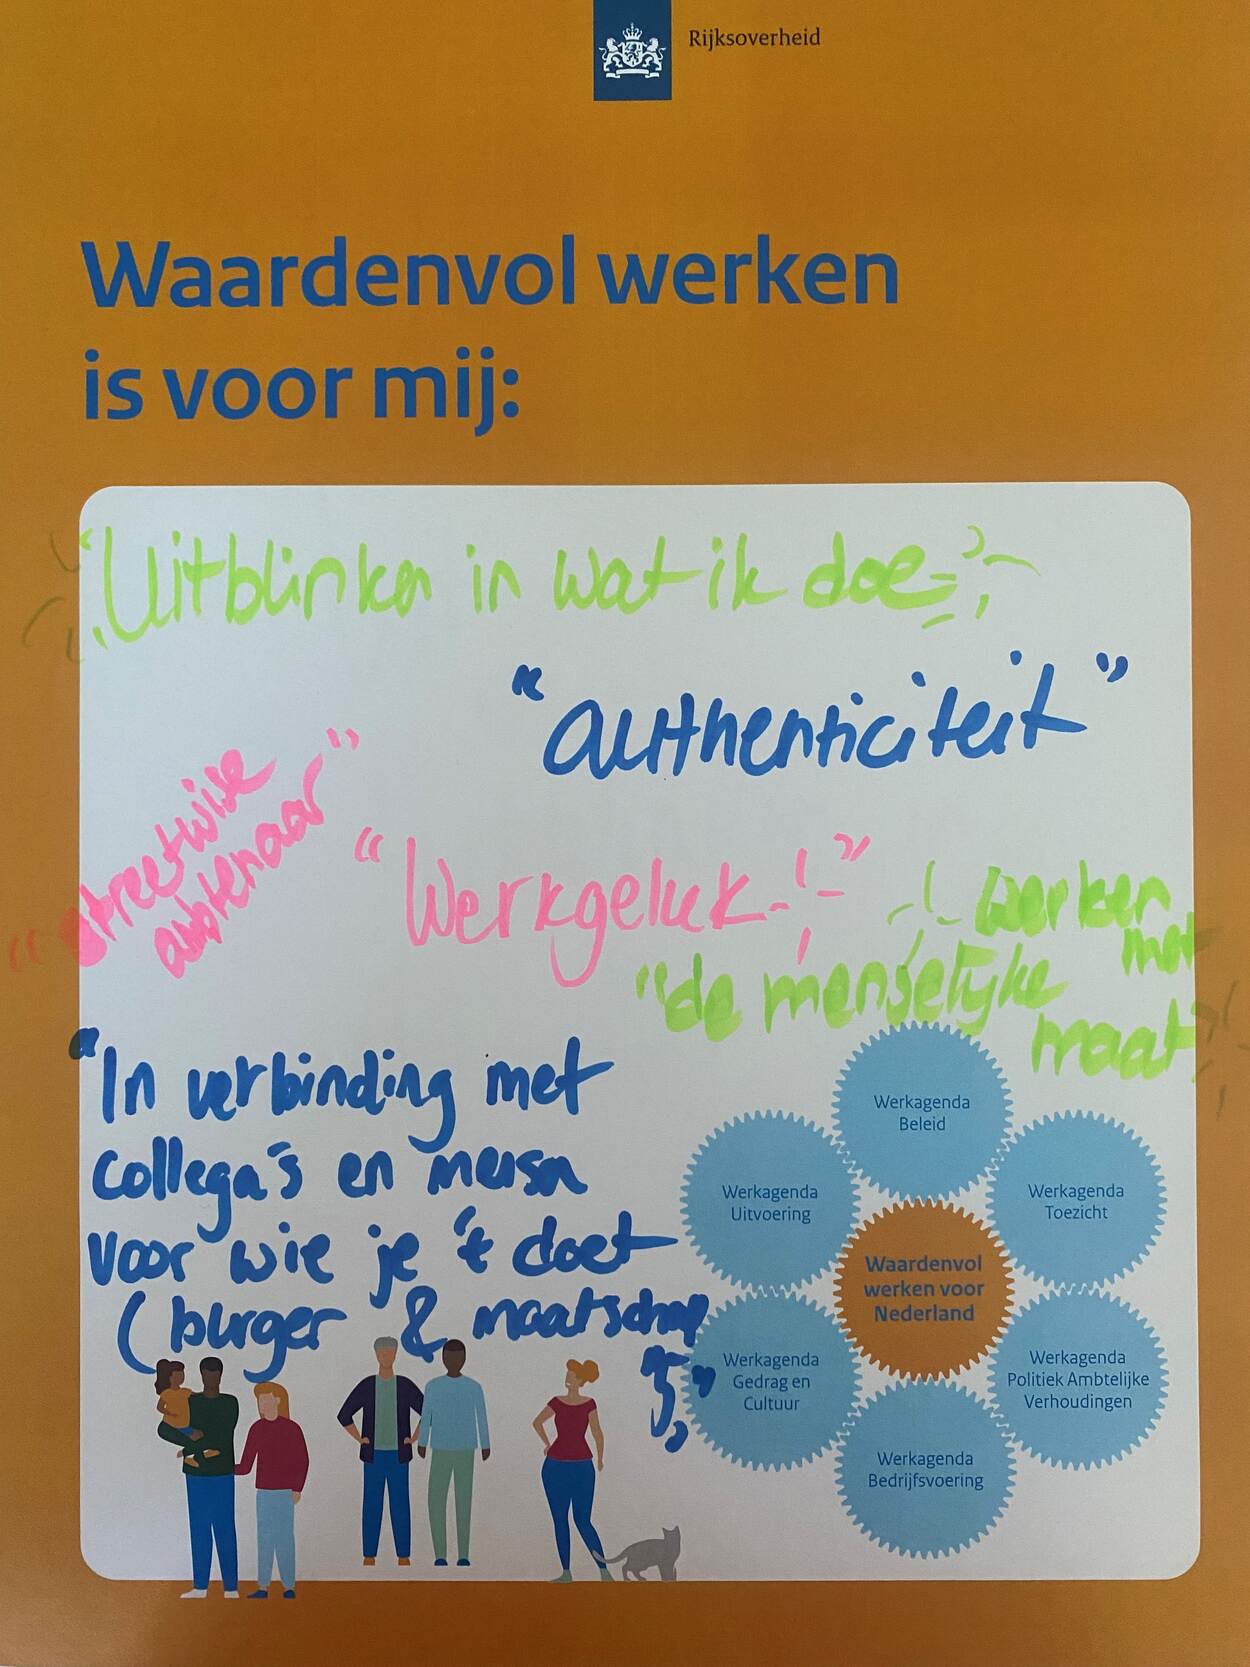 Rijksoverheid
Waardenvol werken
is voor mij:
"Uitblinken in wat ik doe"
"authenticiteit"
"streetwise
ambtenaar"
"Werkgeluk"
werken
met
"de menselijke
maat"
"In verbinding met
collega's en mensen
voor wie je 't doet
(burger & maatschap
Werkagenda
Beleid
Werkagenda
Uitvoering
Werkagenda
Toezicht
Waardenvol
werken voor
Nederland
Werkagenda
Gedrag en
Cultuur
Werkagenda
Politiek Ambtelijke
Verhoudingen
Werkagenda
Bedrijfsvoering